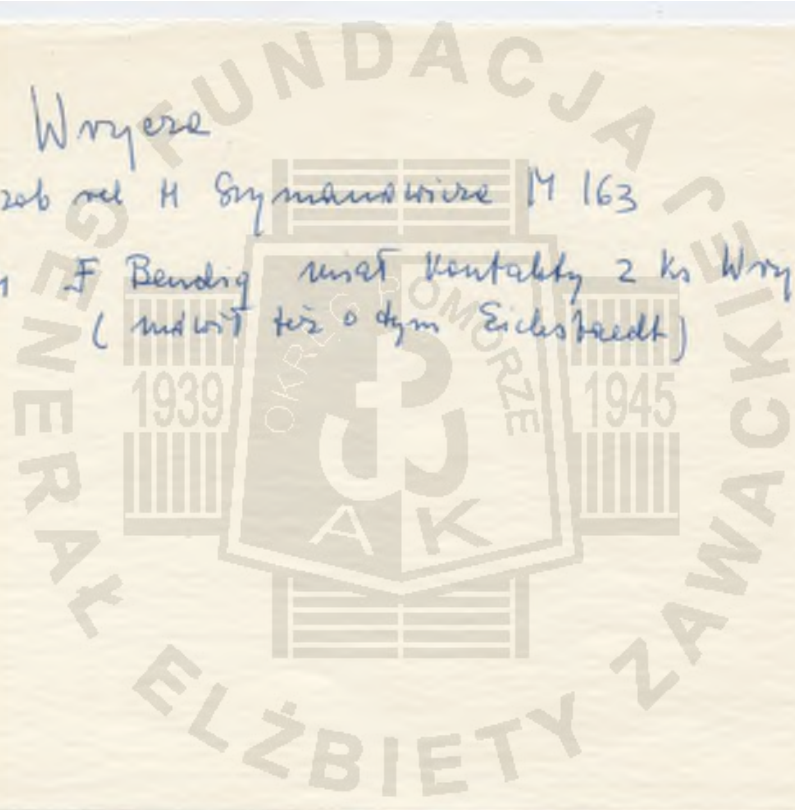 Wrycza
zob rel H Szymanowicza M 163
F Bendig miał kontakty z ks Wry
(mówił też o tym Eichstaedt)
FUNDACJA GENERAŁ ELŻBIETY ZAWACKIEJ
OKRĘG POMORZE
1939 1945
AK